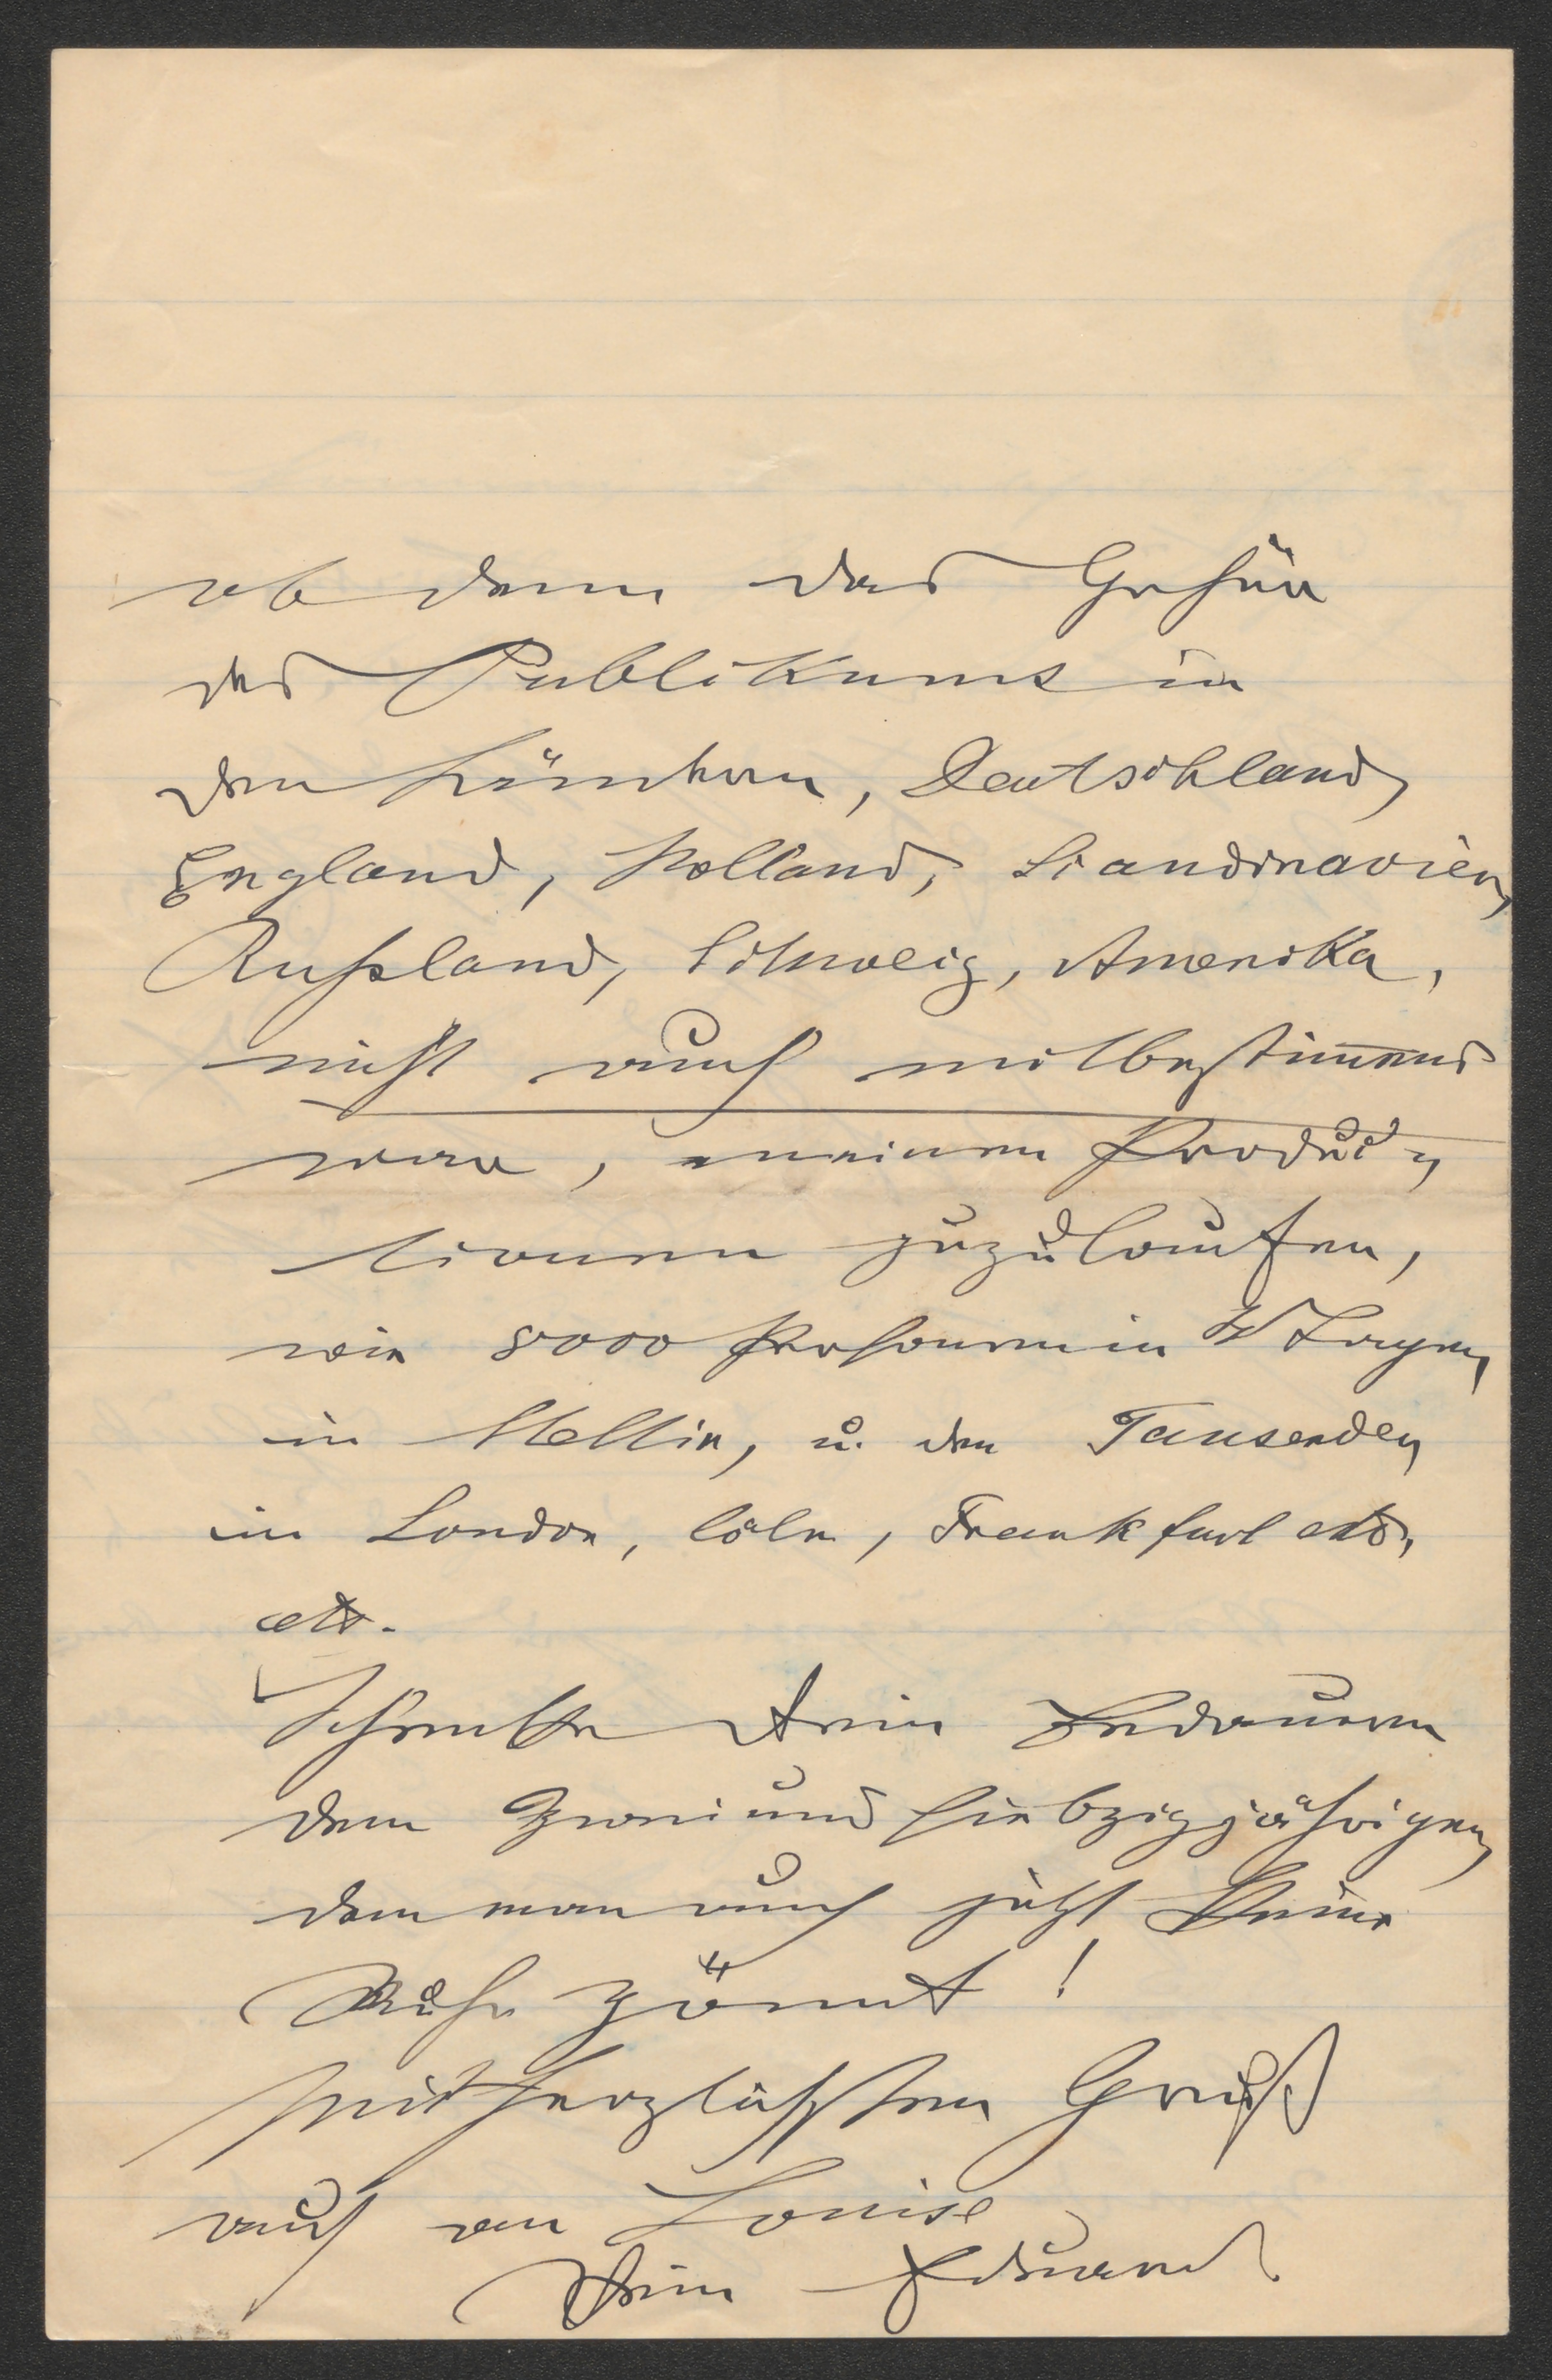 ob denn das Gehör
des Publikums in
den Ländern, Deutschland,
England, Holland, Scandinavien,
Rußland, Schweiz, Amerika,
nicht auch mitbestimmend
war, meinen Produc¬
tionen zuzulaufen,
wie 8000 Personen in 4 Tagen,
in Stettin, u. den Tausenden
in London, Cöln, Frankfurt etc,
etc.
Schenke Dein Bedauern
dem Zweiundsiebzigjährigen,
dem man auch jetzt keine
Ruhe gönnt!
Mit herzlichstem Gruß
auch an Louise
Dein Eduard